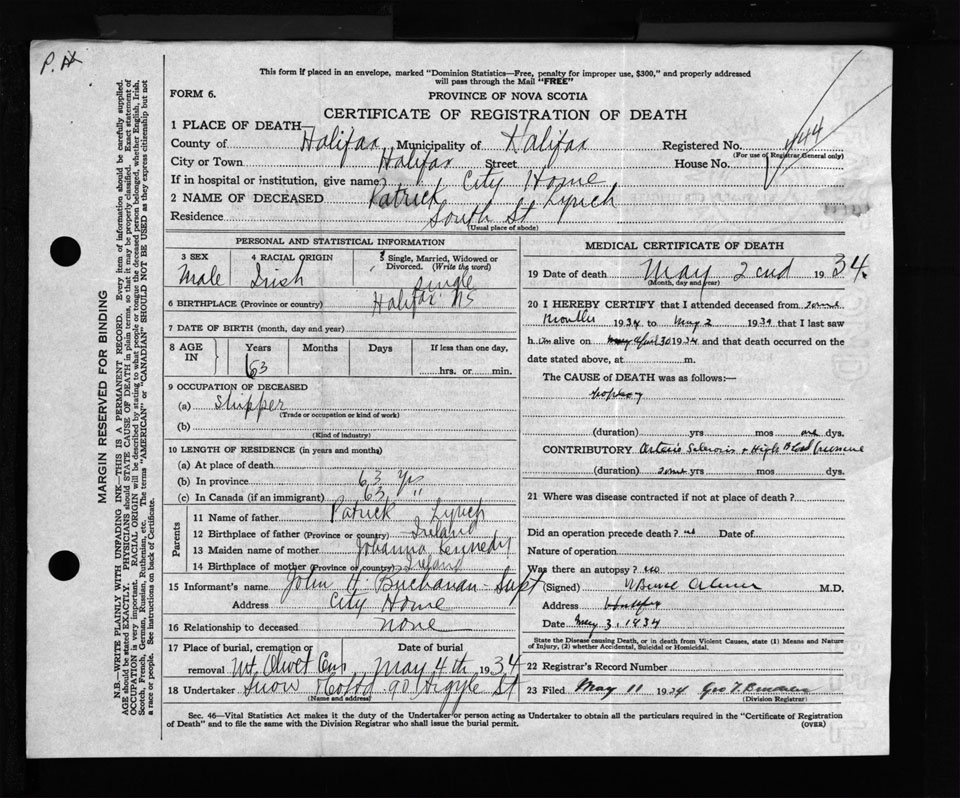 P. H
This form if placed in an envelope, marked "Dominion Statistics—Free, penalty for improper use, $300," and properly addressed
will pass through the Mail "FREE"
FORM 6.
PROVINCE OF NOVA SCOTIA
CERTIFICATE OF REGISTRATION OF DEATH
1 PLACE OF DEATH—
County of Halifax Municipality of Halifax Registered No. 444
(For use of Registrar General only)
City or Town Halifax Street House No.
If in hospital or institution, give name City Home
2 NAME OF DECEASED Patrick Lynch
Residence South St
(Usual place of abode)
PERSONAL AND STATISTICAL INFORMATION
3 SEX 4 RACIAL ORIGIN 5 Single, Married, Widowed or
Divorced. (Write the word)
Male Irish Single
6 BIRTHPLACE (Province or country) Halifax NS
7 DATE OF BIRTH (month, day and year)
8 AGE IN Years Months Days If less than one day,
63 hrs. or min.
9 OCCUPATION OF DECEASED
(a)
(Trade or occupation or kind of work)
(b)
(Kind of industry)
10 LENGTH OF RESIDENCE (in years and months)
(a) At place of death
(b) In province 63 Yrs
(c) In Canada (if an immigrant) 63 "
Parents
11 Name of father Patrick Lynch
12 Birthplace of father (Province or country) Ireland
13 Maiden name of mother Johanna Kennedy
14 Birthplace of mother (Province or country) Ireland
15 Informant's name John H Buchanan - Supt
Address City Home
16 Relationship to deceased none
17 Place of burial, cremation or Date of burial
removal Mt Olivet Cem May 4th 1934
18 Undertaker Snow & Co Ltd 90 Argyle St
(Name and address)
MEDICAL CERTIFICATE OF DEATH
19 Date of death May 2nd 1934.
(Month, day and year)
20 I HEREBY CERTIFY that I attended deceased from some
months 1934 to May 2 1934 that I last saw
him alive on April 30 1934 and that death occurred on the
date stated above, at m.
The CAUSE of DEATH was as follows:—
(duration) yrs mos one dys.
CONTRIBUTORY Arterio Sclerosis + High Blood Pressure
(duration) some yrs mos dys.
21 Where was disease contracted if not at place of death?
Did an operation precede death? no Date of
Nature of operation
Was there an autopsy? no
(Signed) M.D.
Address Halifax
Date May 3, 1934
State the Disease causing Death, or in death from Violent Causes, state (1) Means and Nature
of Injury, (2) whether Accidental, Suicidal or Homicidal.
22 Registrar's Record Number
23 Filed May 11 1934 Geo T
(Division Registrar)
Sec. 46—Vital Statistics Act makes it the duty of the Undertaker or person acting as Undertaker to obtain all the particulars required in the "Certificate of Registration
of Death" and to file the same with the Division Registrar who shall issue the burial permit. (OVER)
MARGIN RESERVED FOR BINDING
N.B.—WRITE PLAINLY WITH UNFADING INK—THIS IS A PERMANENT RECORD. Every item of information should be carefully supplied.
AGE should be stated EXACTLY. PHYSICIANS should STATE CAUSE OF DEATH in plain terms, so that it may be properly classified. Exact statement of
OCCUPATION is very important. RACIAL ORIGIN will be described by stating to what people or tongue the deceased person belonged, whether English, Irish,
Scotch, French, German, Russian, Ruthenian, etc. The terms "AMERICAN" or "CANADIAN" SHOULD NOT BE USED as they express citizenship but not
a race or people. See instructions on back of Certificate.